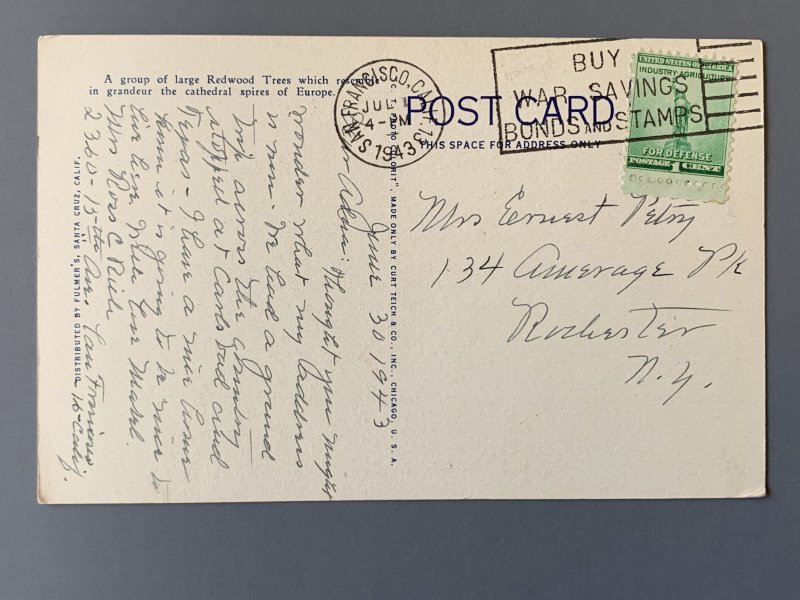 A group of large Redwood Trees which resemble
in grandeur the cathedral spires of Europe.
POST CARD
THIS SPACE FOR ADDRESS ONLY
SAN FRANCISCO, CALIF.
JUL 1
4-PM
1943
BUY
WAR SAVINGS
BONDS AND STAMPS
UNITED STATES OF AMERICA
INDUSTRY AGRICULTURE
FOR DEFENSE
POSTAGE 1 CENT
MADE ONLY BY CURT TEICH & CO., INC., CHICAGO, U. S. A.
DISTRIBUTED BY FULMER'S, SANTA CRUZ, CALIF.
June 30 1943
thought you might
wonder what my address
is now. We had a grand
trip across the country
stopped at Carlsbad and
Vegas - I have a nice home
it is going to be nice to
live here. Love Mabel
Mrs Ross C
2360-15th Ave. San Francisco
16-Calif.
Mrs Ernest Petry
134 Amerage Pk
Rochester
N.Y.